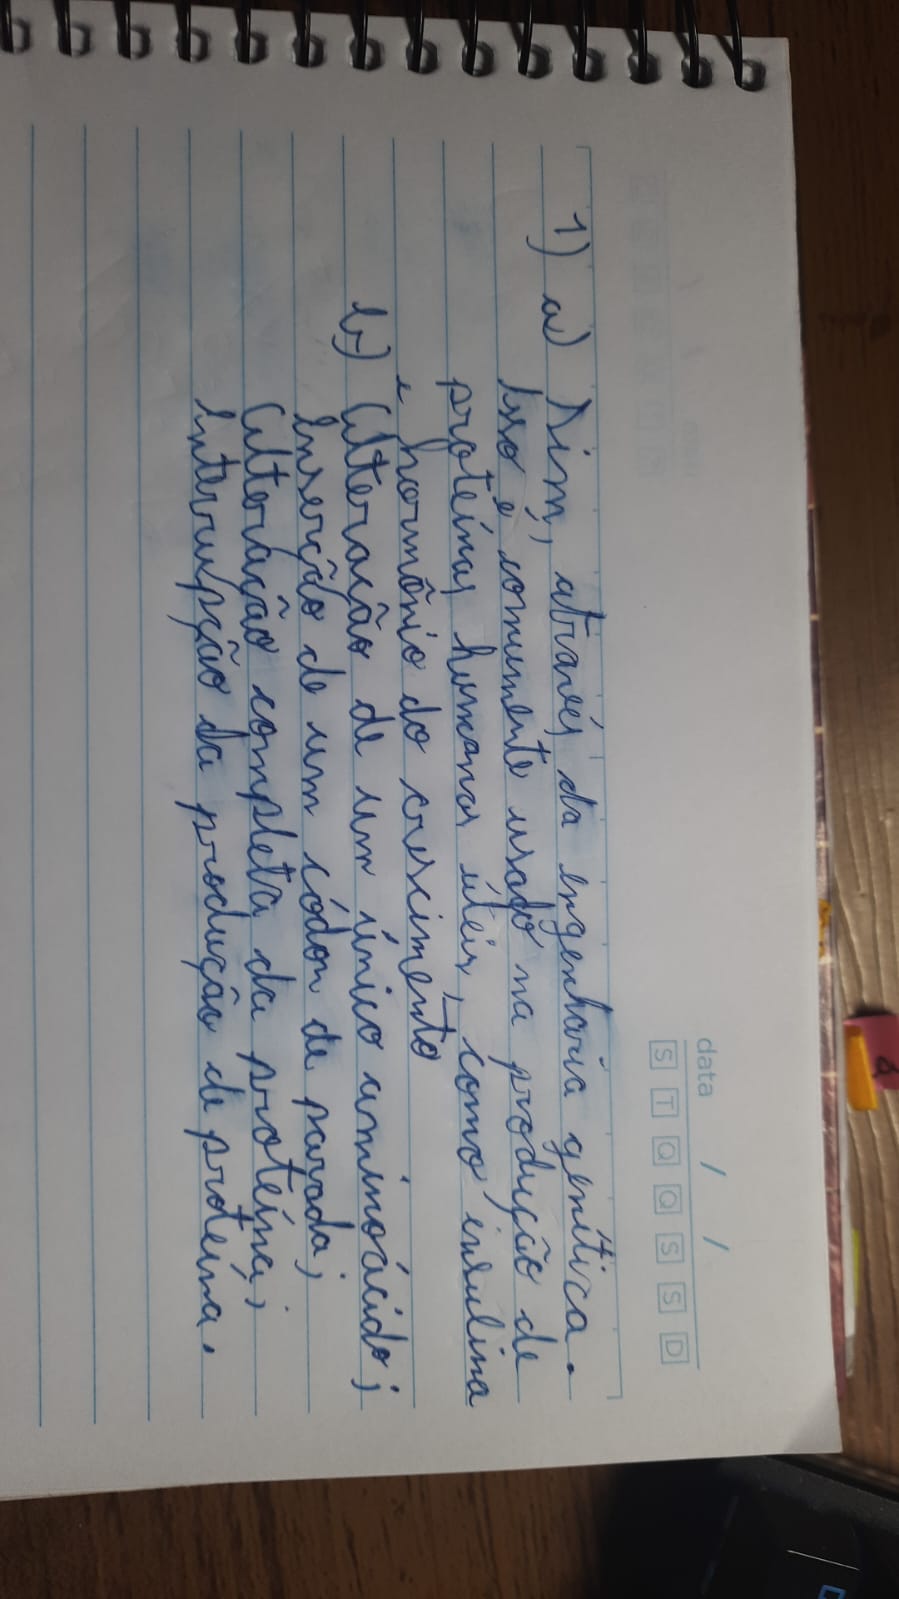 data / /
S T Q Q S S D
1) a) Sim, através da engenharia genética.
Isso é comumente usado na produção de
proteínas humanas úteis, como insulina
e hormônio do crescimento
b) Alteração de um único aminoácido;
Inserção de um códon de parada;
Alteração completa da proteína;
Interrupção da produção de proteína.